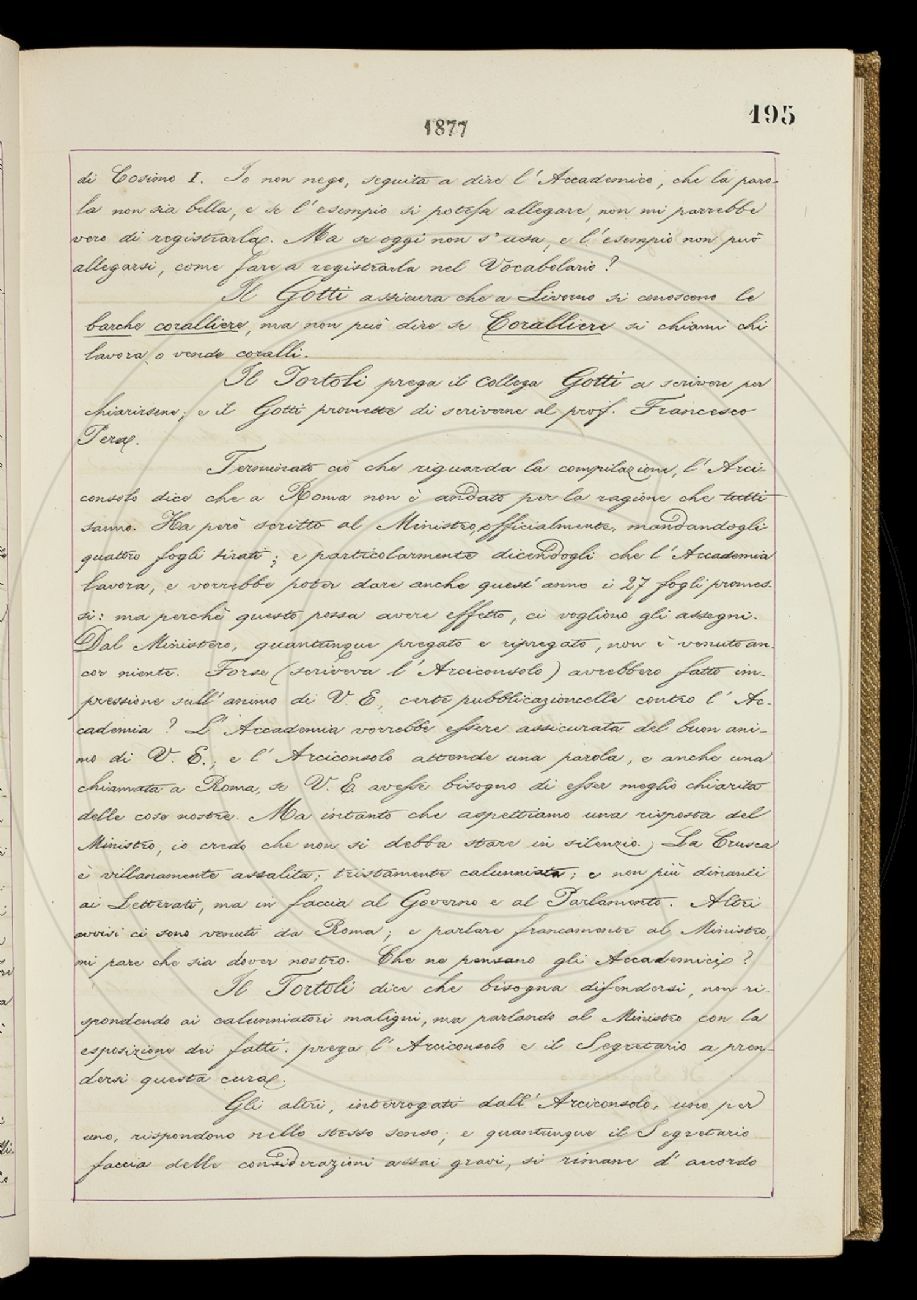 195
1877
di Cosimo I. Io non nego, seguita a dire l'Accademico, che la paro-
la non sia bella, e se l'esempio si potesse allegare, non mi parrebbe
vero di registrarla. Ma se oggi non s'usa, e l'esempio non può
allegarsi, come fare a registrarla nel Vocabolario?
Il Gotti assicura che a Livorno si conoscono le
barche coralliere, ma non può dire se Coralliere si chiami chi
lavora o vende coralli.
Il Tortoli prega il collega Gotti a scrivere per
chiarirsene; e il Gotti promette di scriverne al prof. Francesco
Pera.
Terminato ciò che riguarda la compilazione, l'Arci-
consolo dice che a Roma non è andato per la ragione che tutti
sanno. Ha però scritto al Ministro, officialmente, mandandogli
quattro fogli tirati; e particolarmente dicendogli che l'Accademia
lavora, e vorrebbe poter dare anche quest'anno i 27 fogli promes-
si: ma perchè questo possa avere effetto, ci vogliono gli assegni.
Dal Ministero, quantunque pregato e ripregato, non è venuto an-
cor niente. Forse (scriveva l'Arciconsolo) avrebbero fatto im-
pressione sull'animo di V. E. certe pubblicazioncelle contro l'Ac-
cademia? L'Accademia vorrebbe essere assicurata del buon ani-
mo di V. E.; e l'Arciconsolo attende una parola, e anche una
chiamata a Roma, se V. E. avesse bisogno di esser meglio chiarita
delle cose nostre. Ma intanto che aspettiamo una risposta del
Ministro, io credo che non si debba stare in silenzio. La Crusca
è villanamente assalita; tristamente calunniata; e non più dinanzi
ai Letterati, ma in faccia al Governo e al Parlamento. Altri
avvisi ci sono venuti da Roma; e parlare francamente al Ministro,
mi pare che sia dover nostro. Che ne pensano gli Accademici?
Il Tortoli dice che bisogna difendersi, non ri-
spondendo ai calunniatori maligni, ma parlando al Ministro con la
esposizione dei fatti: prega l'Arciconsolo e il Segretario a pren-
dersi questa cura.
Gli altri, interrogati dall'Arciconsolo, uno per
uno, rispondono nello stesso senso; e quantunque il Segretario
faccia delle considerazioni assai gravi, si rimane d'accordo